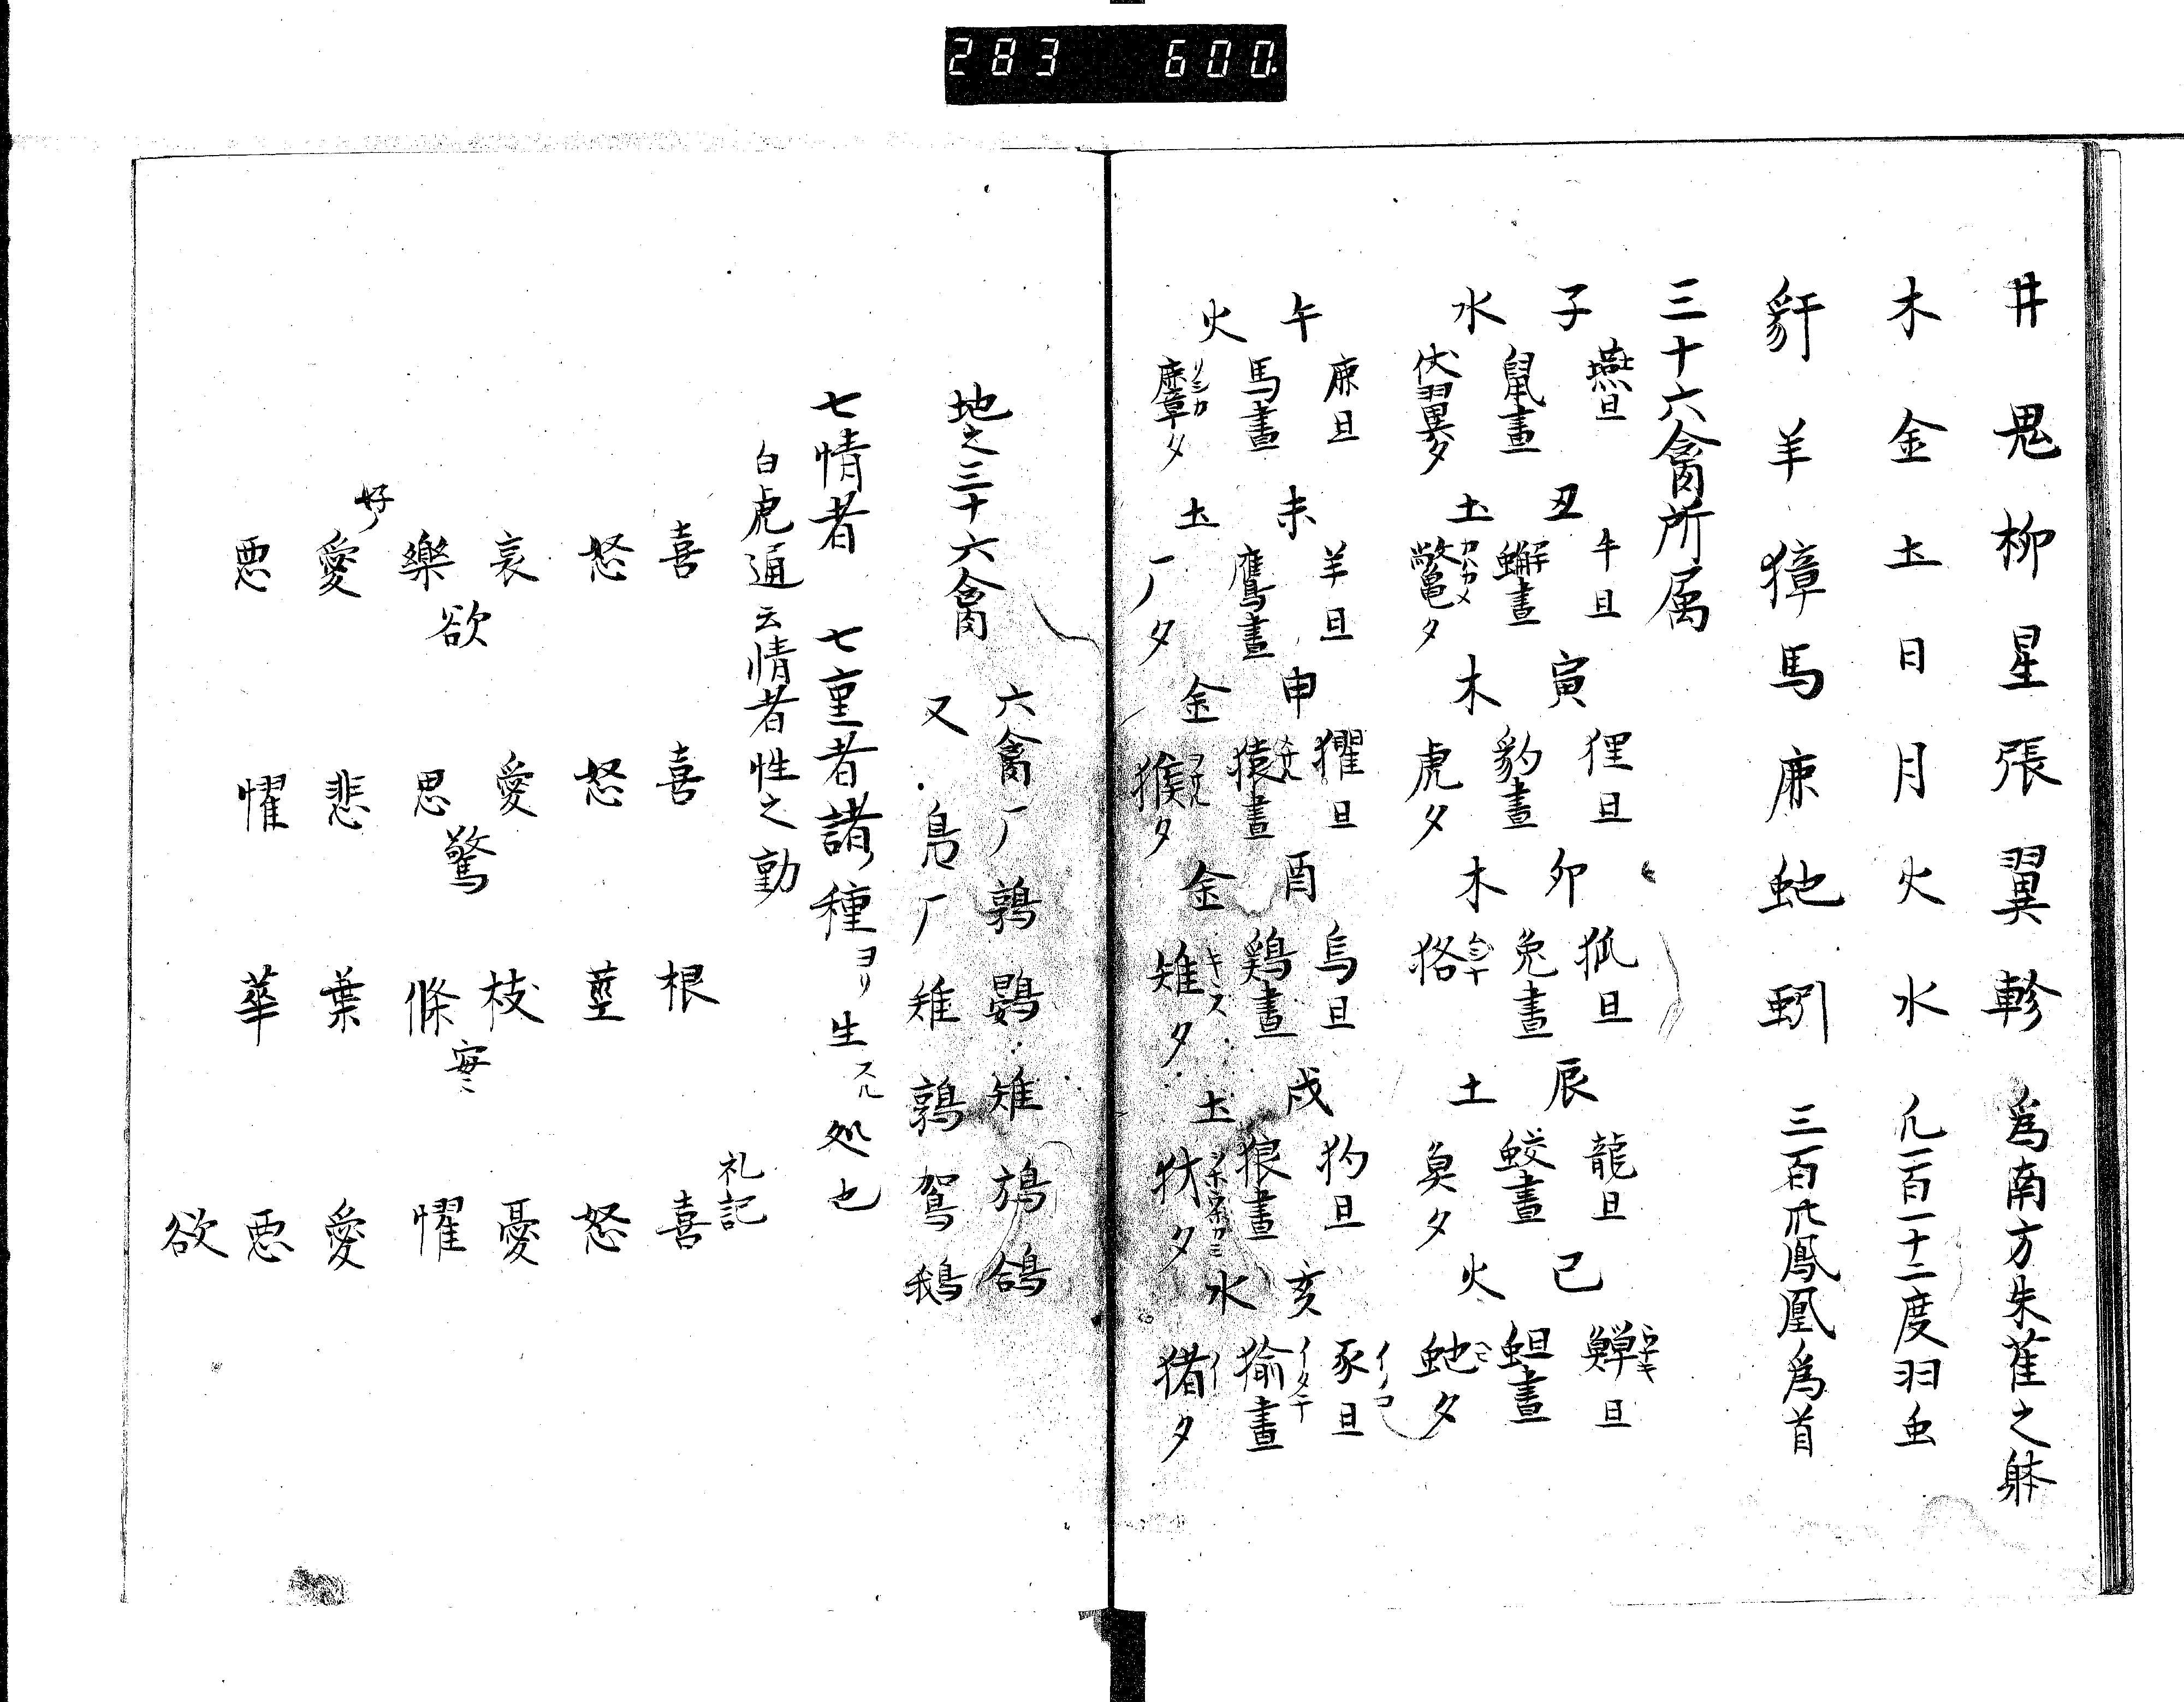 283 600.
井鬼柳星張翼軫 爲南方朱雀之躰
木金土日月火水 凡一百一十二度羽虫
豻羊獐馬鹿虵蚓 三百六十鳳凰爲首
三十六禽所属
子 燕旦 丑 牛旦 寅 狸旦 卯 狐旦 辰 龍旦 巳 鱓旦
鼠晝 蠏晝 豹晝 兎晝 蛟晝 蛆晝
水 伏翼夕 土 鱉夕 木 虎夕 木 狢 土 魚夕 火 虵夕
午 鹿旦 未 羊旦 申 玃旦 酉 烏旦 戌 狗旦 亥 豕旦
馬晝 鷹晝 猿晝 鶏晝 狼晝 貐晝
火 麞夕 土 厂夕 金 猴夕 金 雉夕 土 犲夕 水 猪夕
地之三十六禽 六禽厂鶉鷃雉鴿
又 鳬厂雉鶉鴛鵝
七情者 七重者諸種ヨリ生スル処也
白虎通云情者性之動
礼記
喜 喜 根 喜
怒 怒 莖 怒
哀 愛 枝 憂
欲 驚 實
樂 思 條 懼
好
愛 悲 葉 愛
悪 懼 華 悪
欲